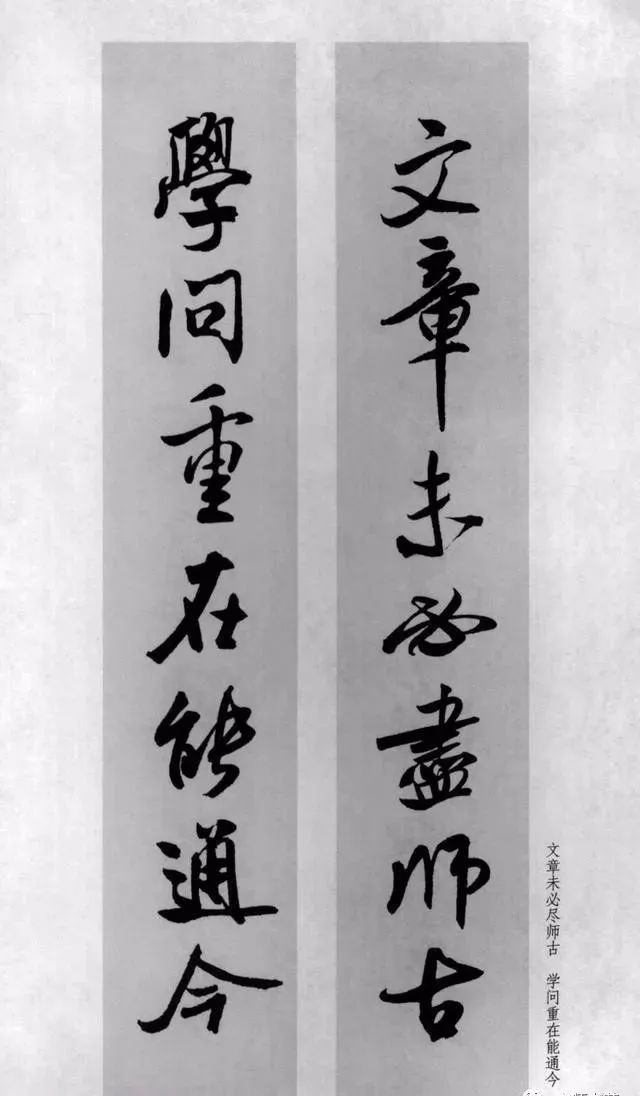 文章未必盡师古
學问重在能通今
文章未必尽师古 学问重在能通今